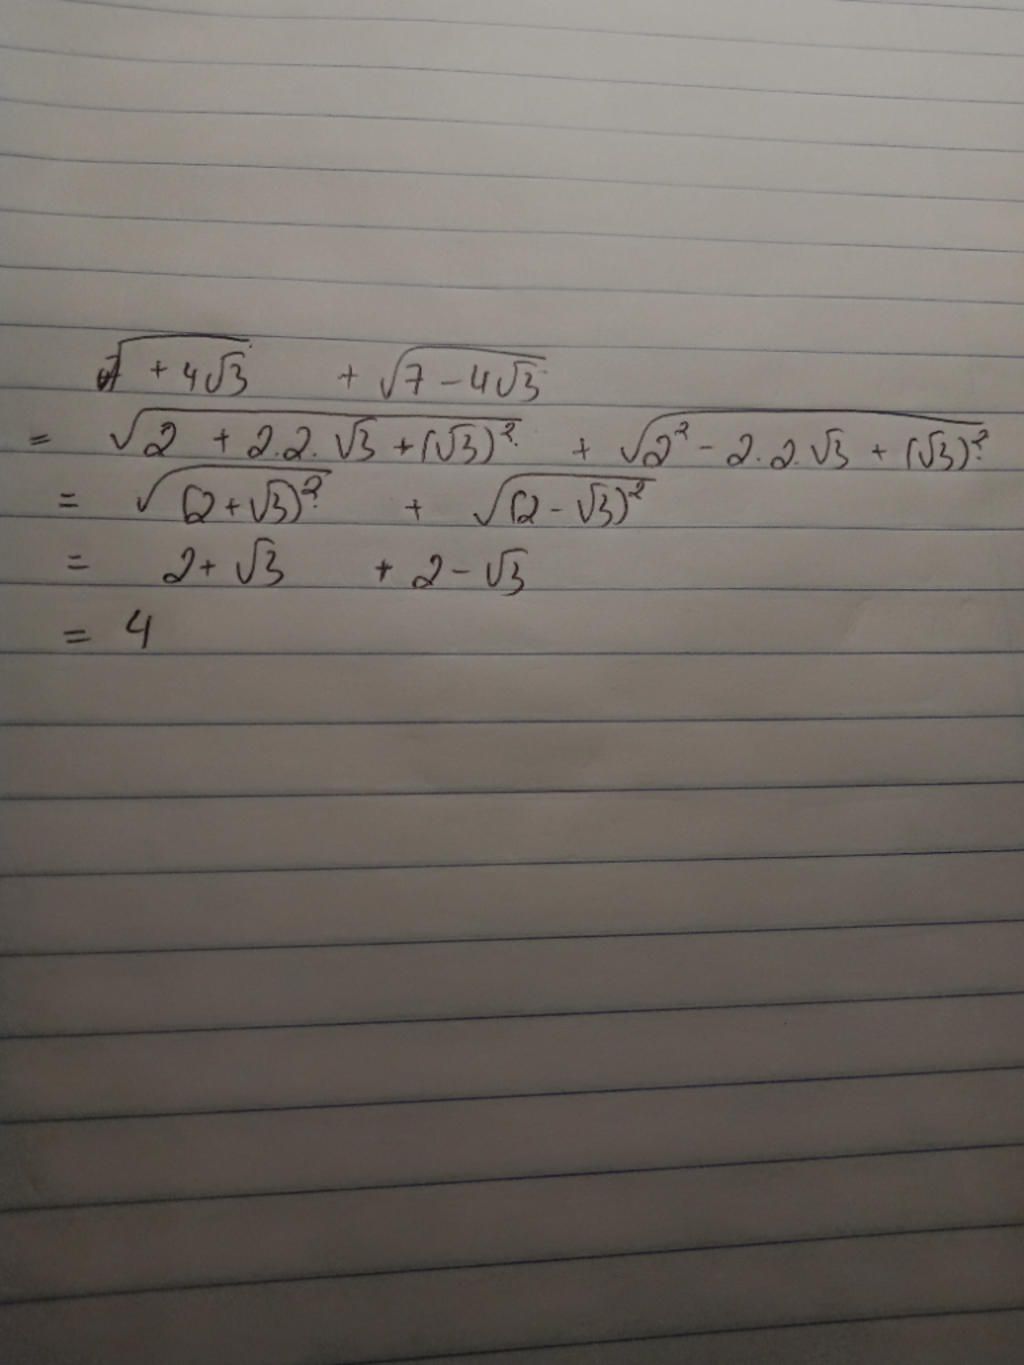 √7 + 4√3 + √7 - 4√3
= √2 + 2.2.√3 + (√3)² + √2² - 2.2.√3 + (√3)²
= √(2+√3)² + √(2-√3)²
= 2+√3 + 2-√3
= 4